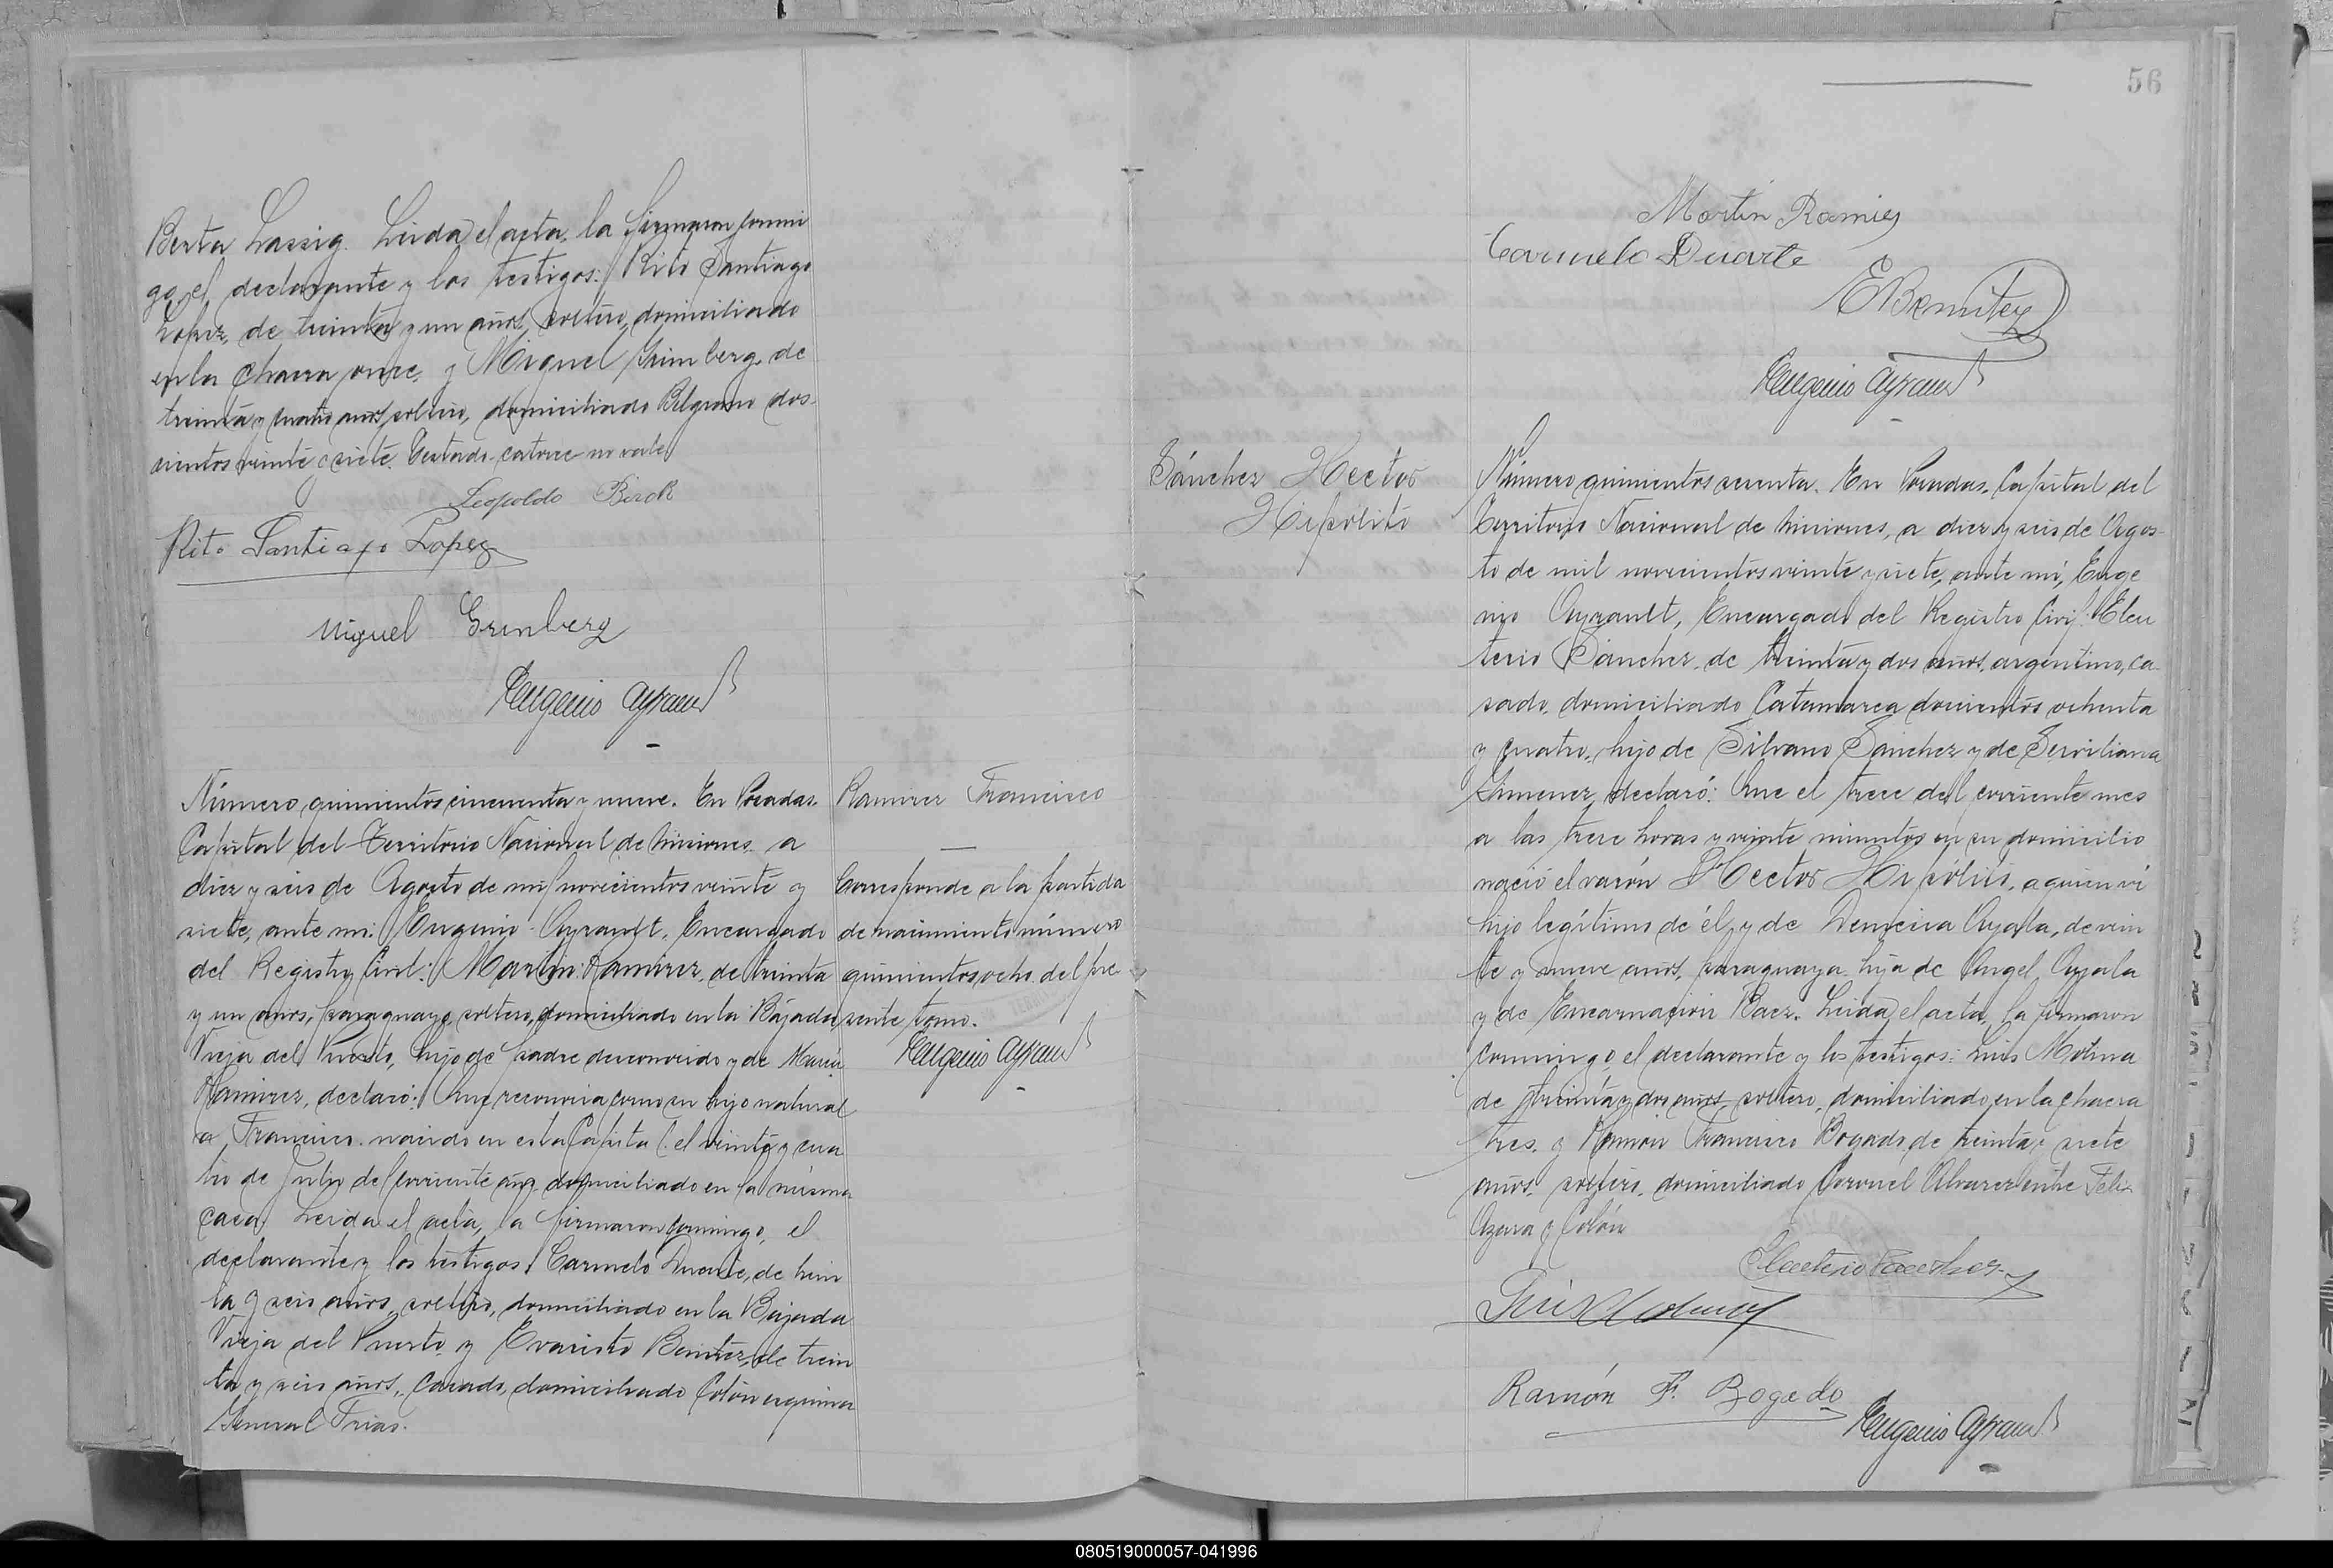 Berta Lassig. Leida el acta, la firmaron conmi
go el declarante y los testigos: Rito Santiago
Lopez, de treinta y un años, soltero, domiciliado
en la chacra once, y Miguel Grimberg, de
treinta y cuatro años, soltero, domiciliado Belgrano dos-
cientos veinte y siete. Testado: catorce no vale
Leopoldo Birck
Rito Santiago Lopez
Miguel Grinberg
Eugenio Ayrault
Número quinientos cincuenta y nueve. En Posadas,
Capital del Territorio Nacional de Misiones a
diez y seis de Agosto de mil novecientos veinte y
siete, ante mi: Eugenio Ayrault, Encargado
del Registro Civil: Martin Ramirez, de treinta
y un años, paraguayo, soltero, domiciliado en la Bajada
Vieja del Puerto, hijo de padre desconocido y de Maria
Ramirez, declaró: Que reconocia como su hijo natural
a Francisco nacido en esta Capital el veinte y cua
tro de Julio del corriente año domiciliado en la misma
casa. Leida el acta, la firmaron conmigo, el
declarante y los testigos: Carmelo Duarte, de trein
ta y seis años, soltero, domiciliado en la Bajada
Vieja del Puerto y Evaristo Benitez, de trein
ta y seis años, casado, domiciliado Colón esquina
General Frias.
Ramirez Francisco
Corresponde a la partida
de nacimiento número
quinientos ocho del pre
sente tomo.
Eugenio Ayrault
56
Martin Ramirez
Carmelo Duarte
E Benitez
Eugenio Ayrault
Sánchez Hector
Hipólito
Número quinientos sesenta. En Posadas, Capital del
Territorio Nacional de Misiones, a diez y seis de Agos-
to de mil novecientos veinte y siete, ante mí, Euge
nio Ayrault, Encargado del Registro Civil: Eleu
terio Sánchez de treinta y dos años, argentino, ca-
sado, domiciliado Catamarca doscientos ochenta
y cuatro, hijo de Silvano Sánchez y de Serviliana
Gimenez, declaró: Que el trece del corriente mes
a las trece horas y veinte minutos en su domicilio
nació el varón Hector Hipólito, a quien ví
hijo legítimo de él y de Ayala, de vein
te y nueve años, paraguaya hija de Angel Ayala
y de Encarnación Baez. Leida el acta, la firmaron
conmigo, el declarante y los testigos: Luis Molina
de treinta y dos años, soltero, domiciliado en la chacra
tres, y Ramón Francisco Bogado de treinta y siete
años, soltero, domiciliado Coronel Alvarez entre Felix
Azara y Colón
Eleuterio Sanchez
Luis Molina
Ramón F. Bogado
Eugenio Ayrault
080519000057-041996